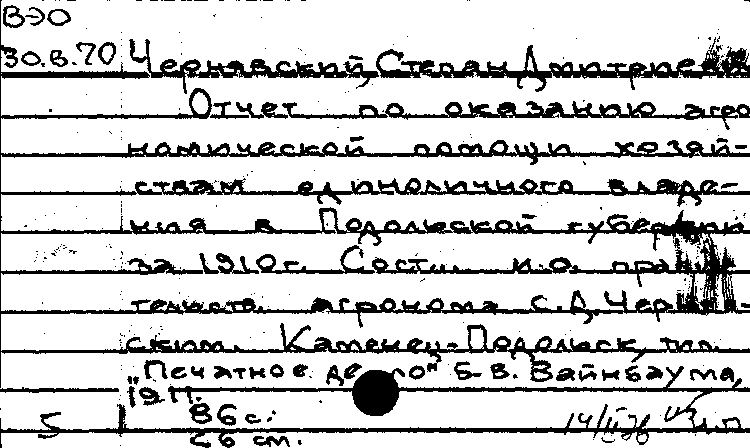 ВЭО
30.В.70 Чернявский, Степан Дмитриевич
Отчет по оказанию агро
номической помощи хозяй-
ствам единоличного владе-
ния в Подольской губернии
за 1910 г. Сост. и.о. правит
тельств. агронома С.Д. Черняв-
ским. Каменец-Подольск, тип.
„Печатное дело" Б-В. Вайнбаума,
1911.
86 с.;
26 см.
5
14/II